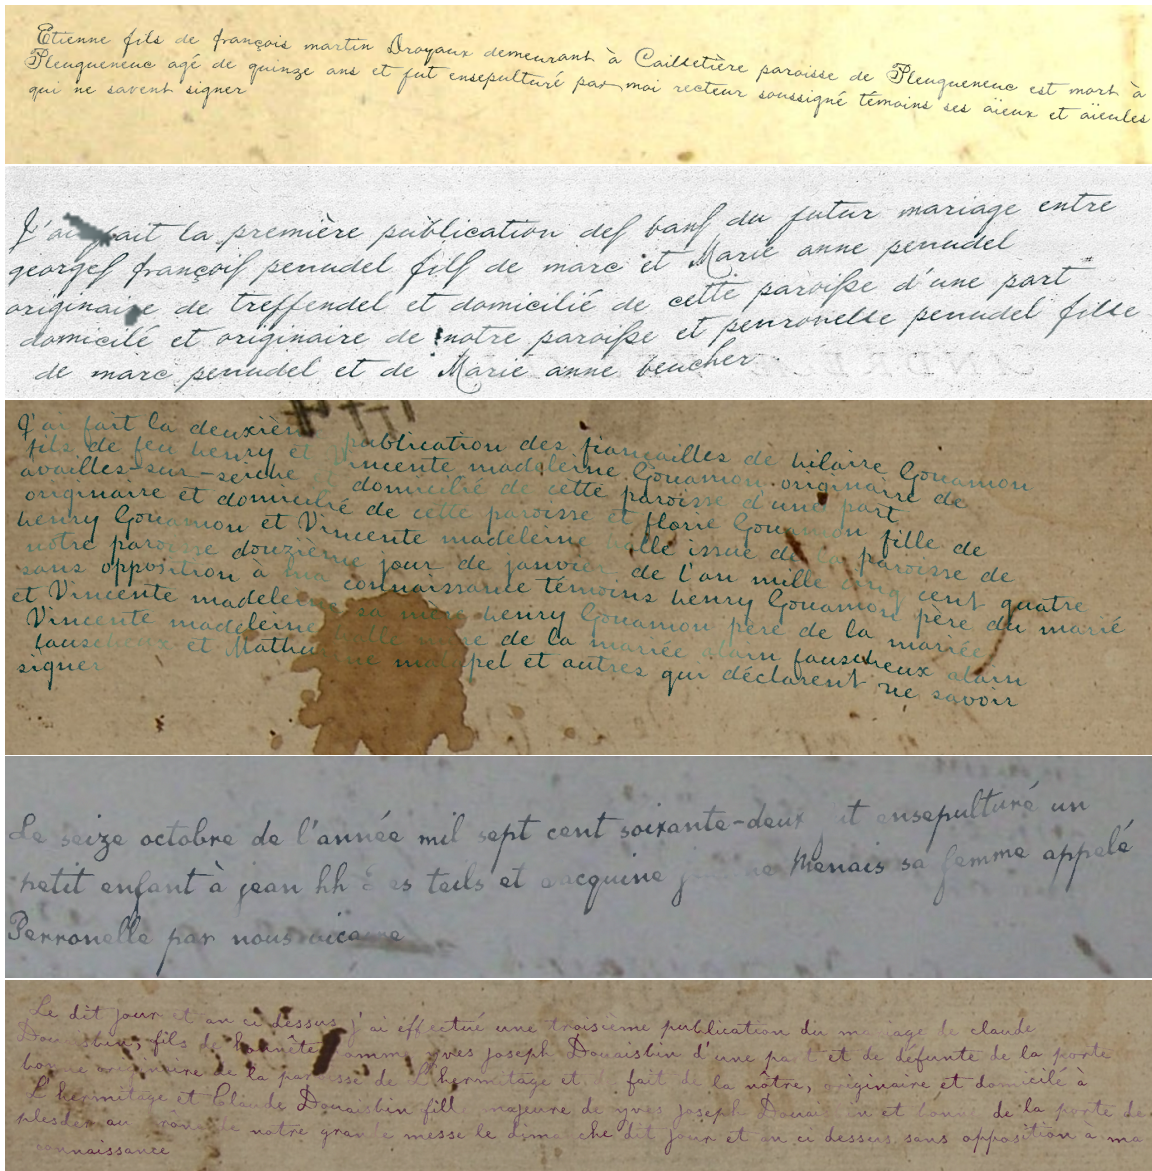 Etienne fils de françois martin Droyaux demeurant à Cailletière paroisse de Pleugueneuc est mort à
Pleugueneuc agé de quinze ans et fut ensepulturé par moi recteur soussigné témoins ses aïeux et aïeules
qui ne savent signer
J'ai fait la première publication des bans du futur mariage entre
georges françois penudel fils de marc et Marie anne penudel
originaire de treffendel et domicilié de cette paroisse d'une part
domicilé et originaire de notre paroisse et penronelle penudel fille
de marc penudel et de Marie anne beucher
J'ai fait la deuxièm publication des fiançailles de hilaire Gouamon
fils de feu henry et Vincente madeleine Gouamon originaire de
availles-sur-seiche domicilié de cette paroisse d'une part
originaire et domicilié de cette paroisse et florie Gouamon fille de
henry Gouamon et Vincente madeleine halle issue de la paroisse de
notre paroisse douzième jour de janvier de l'an mille cinq cent quatre
sans opposition à ma connaissance témoins henry Gouamon père du marié
et Vincente madeleine sa mère henry Gouamon père de la mariée
Vincente madeleine halle mère de la mariée alain fauscheux alain
fauscheux et Mathurine malapel et autres qui déclarent ne savoir
signer
Le seize octobre de l'année mil sept cent soixante-deux it ensepulturé un
petit enfant à jean hh es teils et acquine Menais sa femme appelé
Perronelle par nous vicaire
Le dit jour et an ci dessus j'ai effectué une troisième publication du mariage de claude
Douaisbin, fils de honnête homme yves joseph Douaisbin d'une part et de défunte de la porte
bonne originaire de la paroisse de L'hermitage et de fait de la nôtre, originaire et domicilé à
L'hermitage et Claude Douaisbin fille majeure de yves joseph Douaisbin et bonne de la porte de
plesder au prône de notre grande messe le dimanche dit jour et an ci dessus sans opposition à ma
connaissance